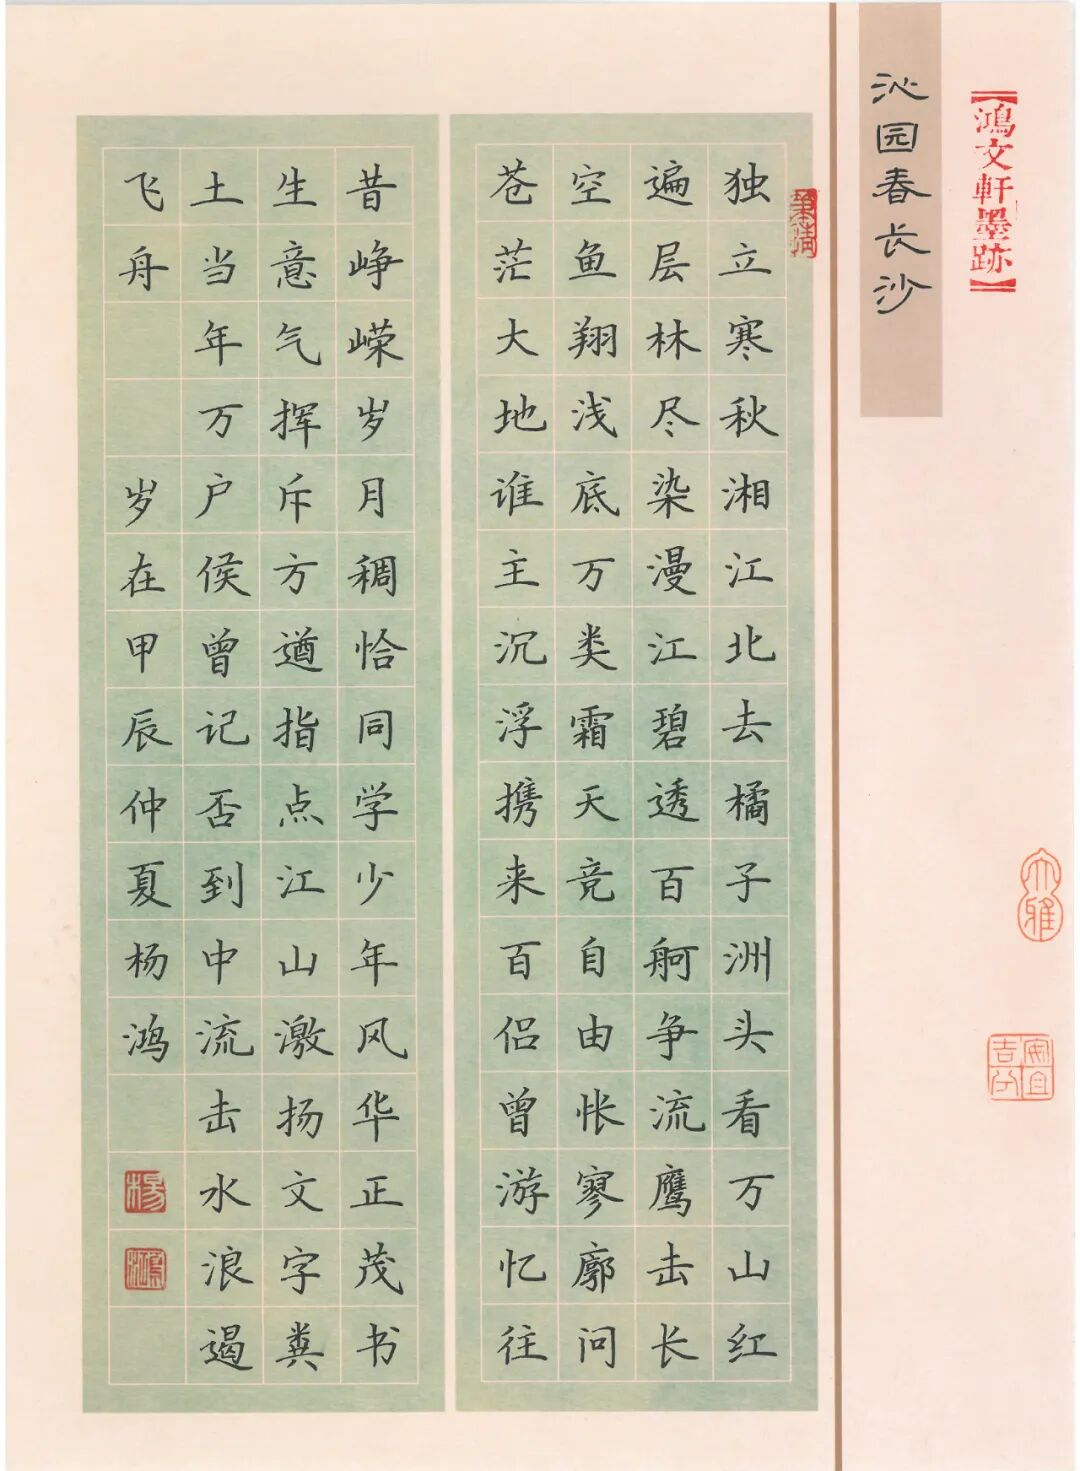 【鴻文軒墨跡】
大雅
沁园春长沙
独立寒秋湘江北去橘子洲头看万山红
遍层林尽染漫江碧透百舸争流鹰击长
空鱼翔浅底万类霜天竞自由怅寥廓问
苍茫大地谁主沉浮携来百侣曾游忆往
昔峥嵘岁月稠恰同学少年风华正茂书
生意气挥斥方遒指点江山激扬文字粪
土当年万户侯曾记否到中流击水浪遏
飞舟 岁在甲辰仲夏杨鸿
楊